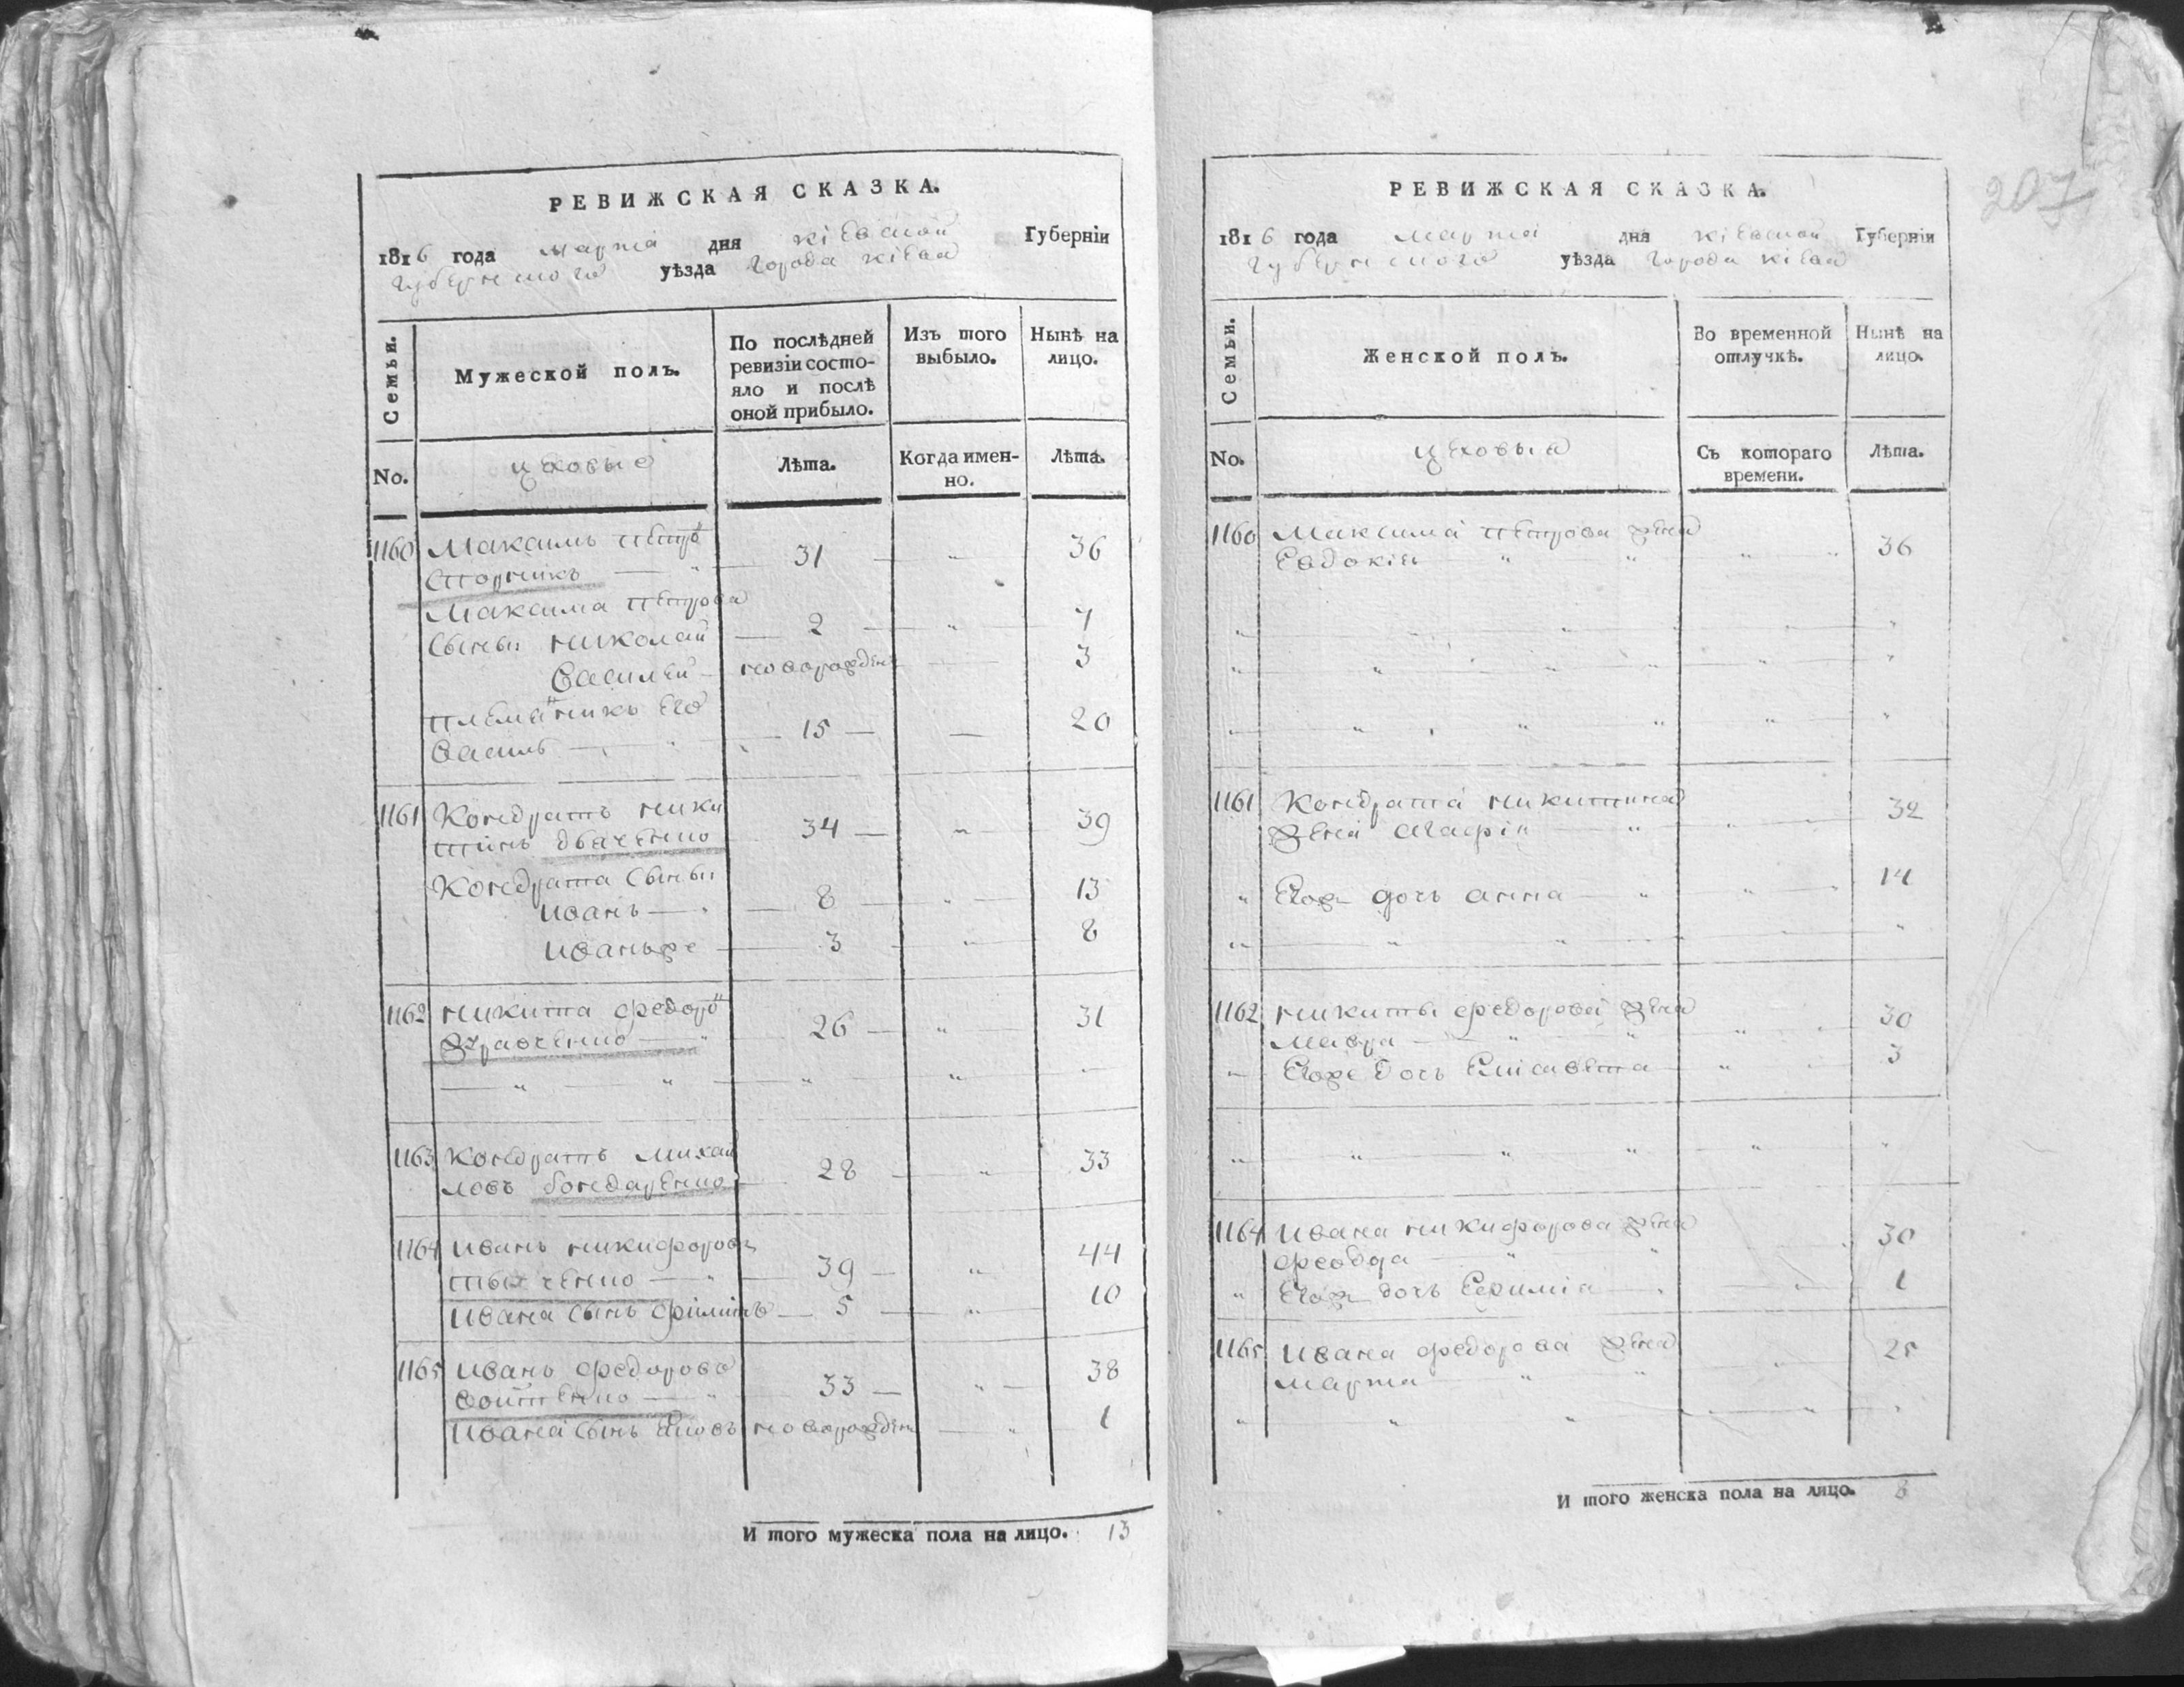 РЕВИЖСКАЯ СКАЗКА.
1816 года марта дня кіевской Губерніи
губернского уѣзда города кіева
Семьи.
Мужеской полъ.
По послѣдней ревизіи состо-
яло и послѣ
оной прибыло.
Изъ того
выбыло.
Нынѣ на
лицо.
No.
цеховые
Лѣта.
Когда имен-
но.
Лѣта.
1160 Максимъ петро
31 " 36
Максима петрова
сыны николай 2 " 7
василей новорожден 3
племянникъ его
василь 15 20
1161 Кондратъ ники
тинъ дьяченко 34 " 39
Кондрата сыны
иванъ 8 " 13
иванъже 3 " 8
1162 никита федоро
26 " 31
1163 Кондратъ михай
ловъ бондаренко 28 " 33
1164 иванъ никифоровъ
39 " 44
ивана сынъ филипъ 5 " 10
1165 иванъ федоровъ
войтенко 33 " 38
ивана сынъ яковъ новорожден " 1
И того мужеска пола на лицо. 13
207
РЕВИЖСКАЯ СКАЗКА.
1816 года марта дня кіевской Губерніи
губернского уѣзда города кіева
Семьи.
Женской полъ.
Во временной
отлучкѣ.
Нынѣ на
лицо.
No.
цеховыя
Съ котораго
времени.
Лѣта.
1160 Максима петрова жена
Евдокія " " 36
1161 Кондрата никитина 32
жена агафія
" Егож дочь анна " 14
1162 никиты федорова жена 30
мавра
Егоже дочь Елисавета " 3
1164 ивана никифорова жена 30
феодора
" Егож дочь 1
1165 ивана федорова жена 25
марта
И того женска пола на лицо. 8